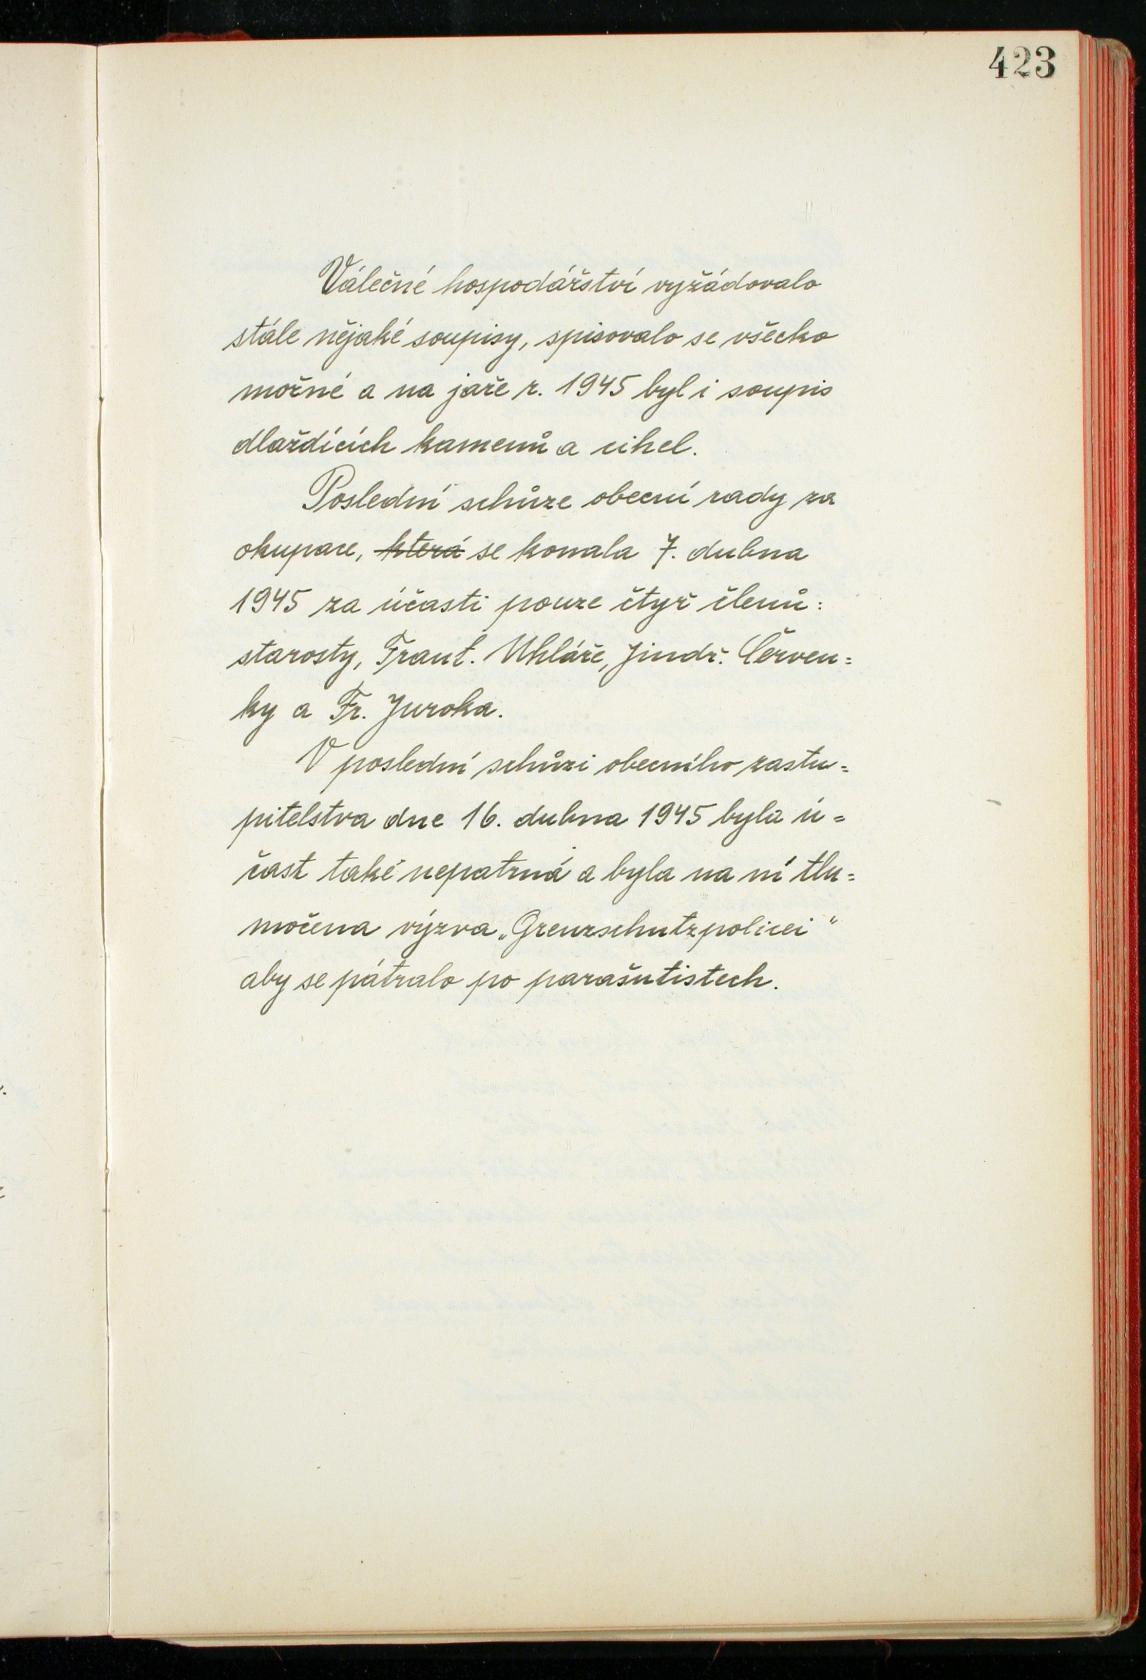 423
Válečné hospodářství vyžádovalo
stále nějaké soupisy, spisovalo se všecko
možné a na jaře r. 1945 byl i soupis
dlaždících kamenů a cihel.
Poslední schůze obecní rady za
okupace, která se konala 7. dubna
1945 za účasti pouze čtyř členů:
starosty, Frant. Uhláře, Jindř. Červen=
ky a Fr. Juroka.
V poslední schůzi obecního zastu=
pitelstva dne 16. dubna 1945 byla ú=
čast také nepatrná a byla na ní tlu=
močena výzva „Grenzschutzpolicei“
aby se pátralo po parašutistech.